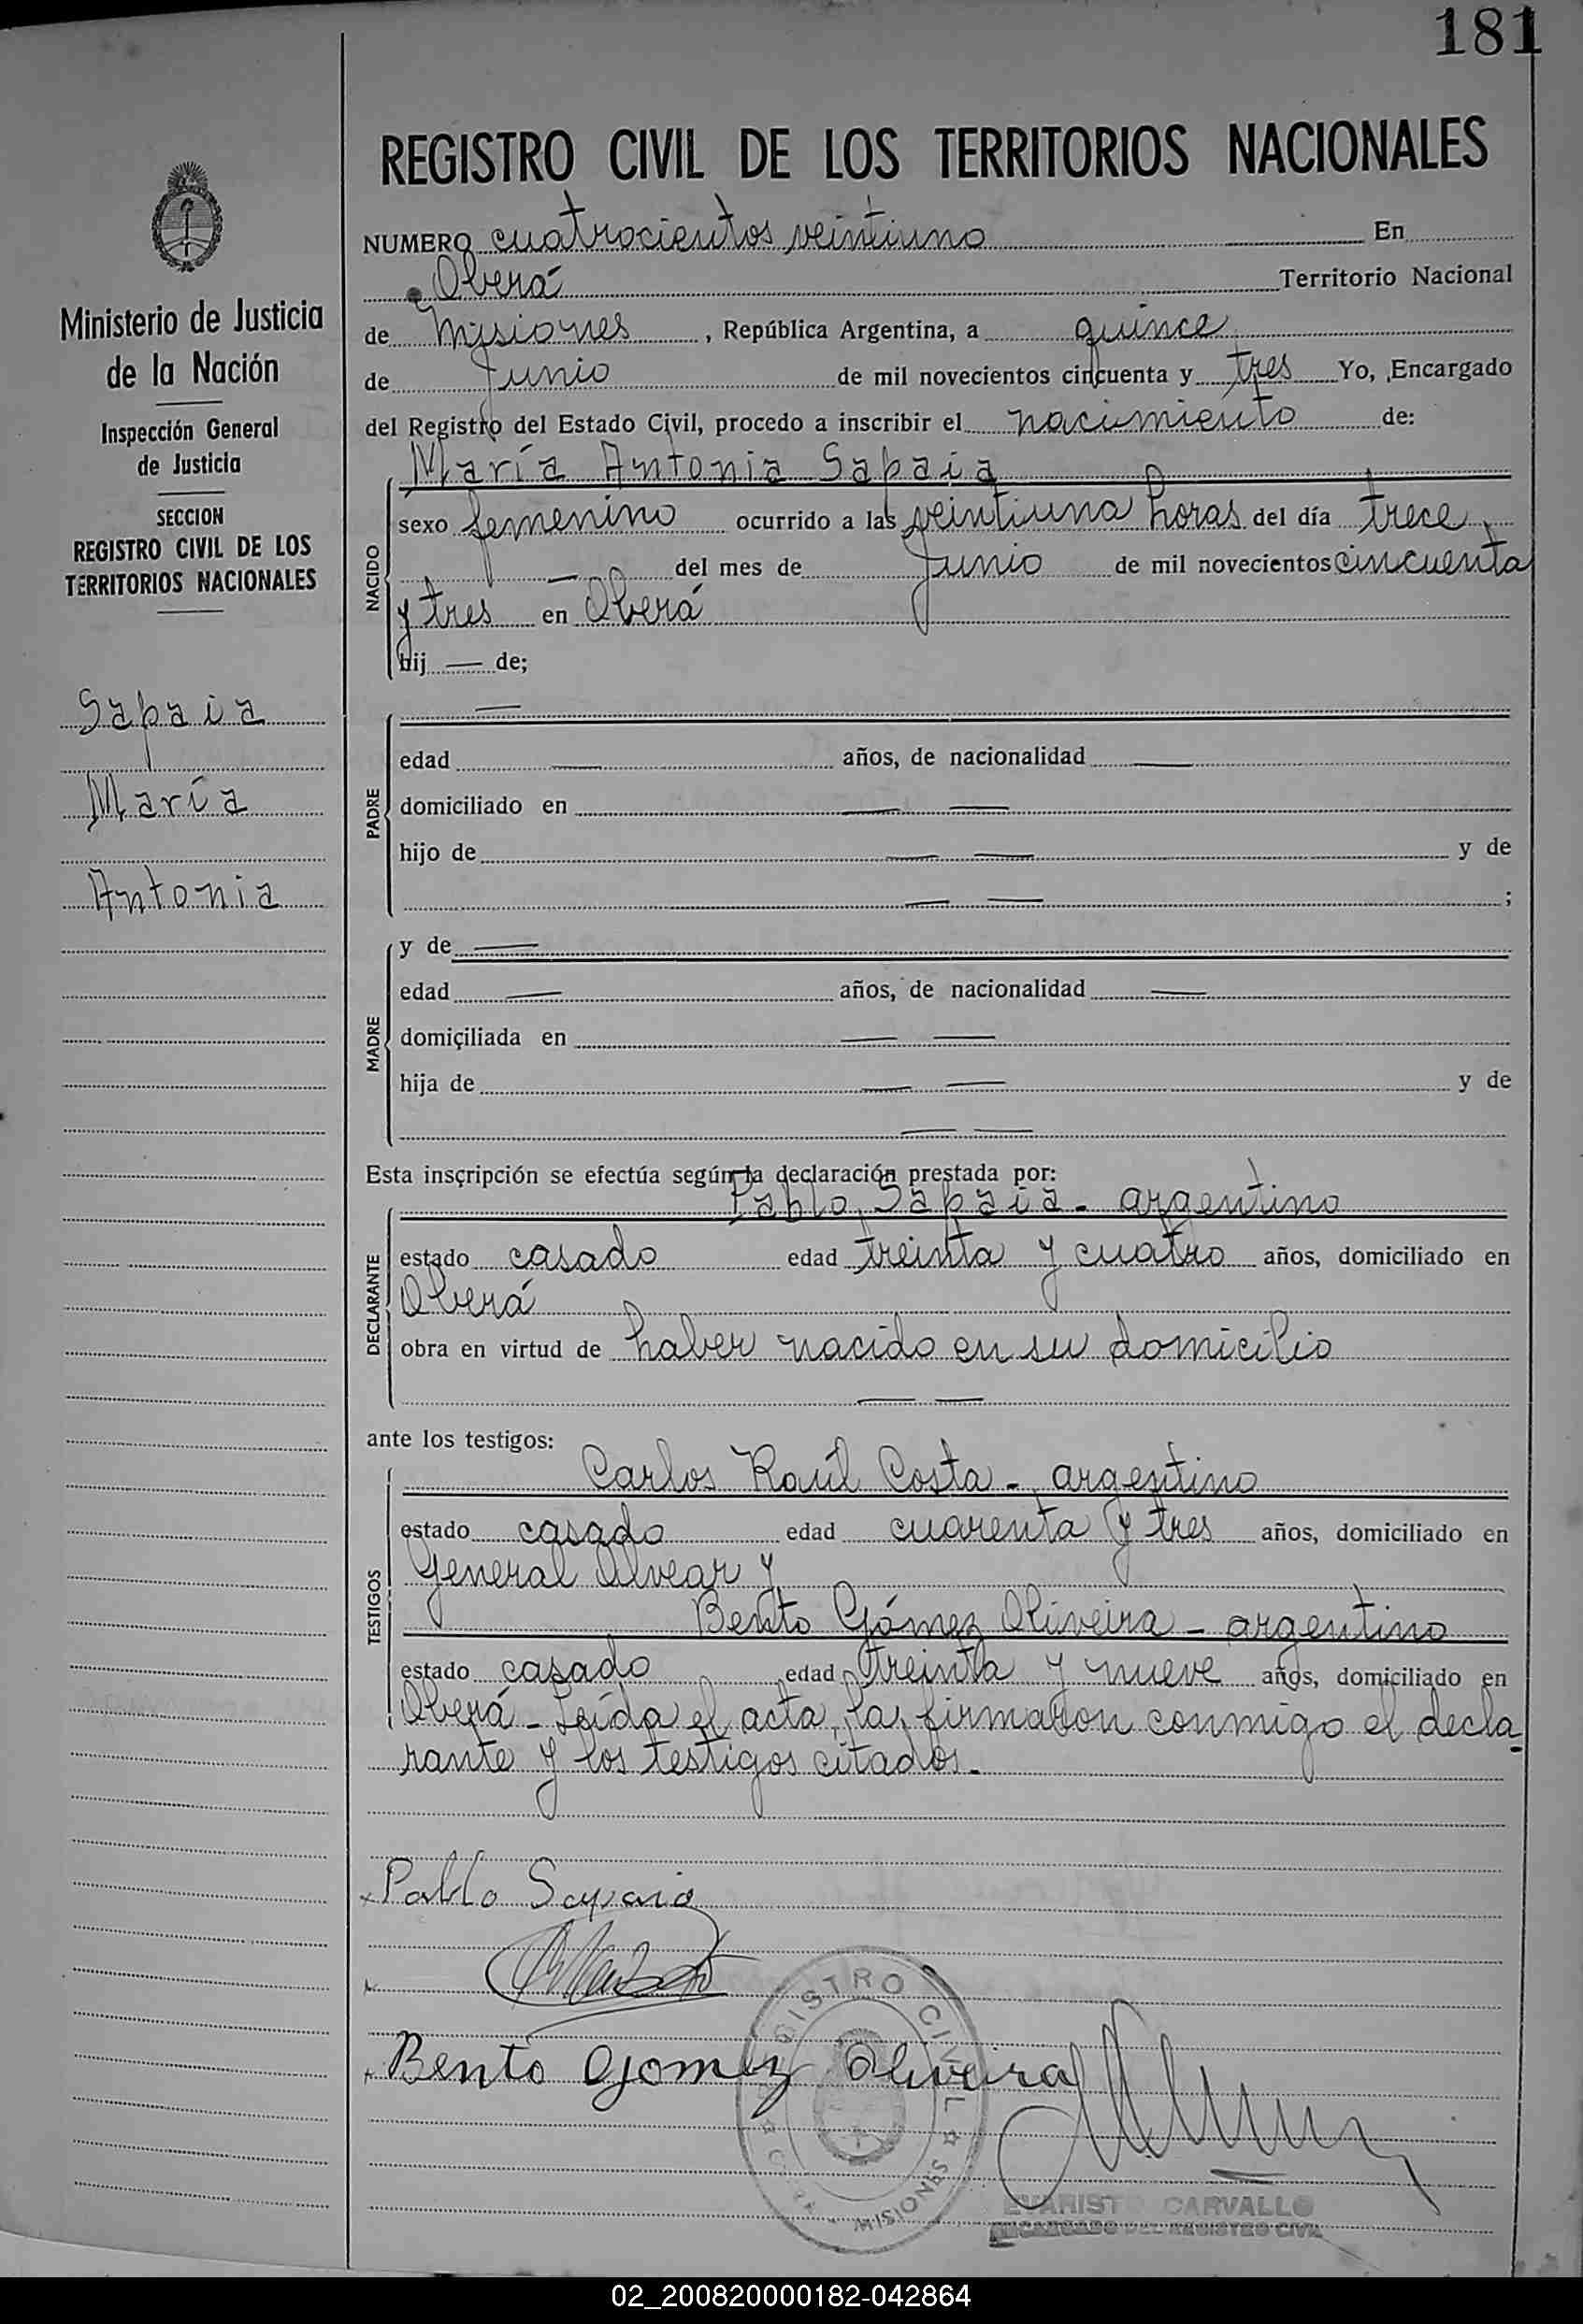 181
REGISTRO CIVIL DE LOS TERRITORIOS NACIONALES
NUMERO cuatrocientos veintiuno En
Oberá Territorio Nacional
de Misiones, República Argentina, a quince
de Junio de mil novecientos cincuenta y tres Yo, Encargado
del Registro del Estado Civil, procedo a inscribir el nacimiento de:
María Antonia Sapaia
NACIDO
sexo femenino ocurrido a las veintiuna horas del día trece
— del mes de Junio de mil novecientos cincuenta
y tres en Oberá
hij — de;
PADRE
—
edad — años, de nacionalidad —
domiciliado en — —
hijo de — — y de
— — ;
MADRE
y de —
edad — años, de nacionalidad —
domiciliada en — —
hija de — — y de
— —
Esta inscripción se efectúa según la declaración prestada por:
DECLARANTE
Pablo Sapaia - argentino
estado casado edad treinta y cuatro años, domiciliado en
Oberá
obra en virtud de haber nacido en su domicilio
— —
ante los testigos:
TESTIGOS
Carlos Raúl Costa - argentino
estado casado edad cuarenta y tres años, domiciliado en
General Alvear y
Bento Gómez Oliveira - argentino
estado casado edad treinta y nueve años, domiciliado en
Oberá - Leída el acta, la firmaron conmigo el decla-
rante y los testigos citados.-
Pablo Sapaia
Bento Gomez Oliveira
REGISTRO CIVIL
MISIONES
EVARISTO CARVALLO
ENCARGADO DEL REGISTRO CIVIL
Ministerio de Justicia
de la Nación
Inspección General
de Justicia
SECCION
REGISTRO CIVIL DE LOS
TERRITORIOS NACIONALES
Sapaia
María
Antonia
02_200820000182-042864